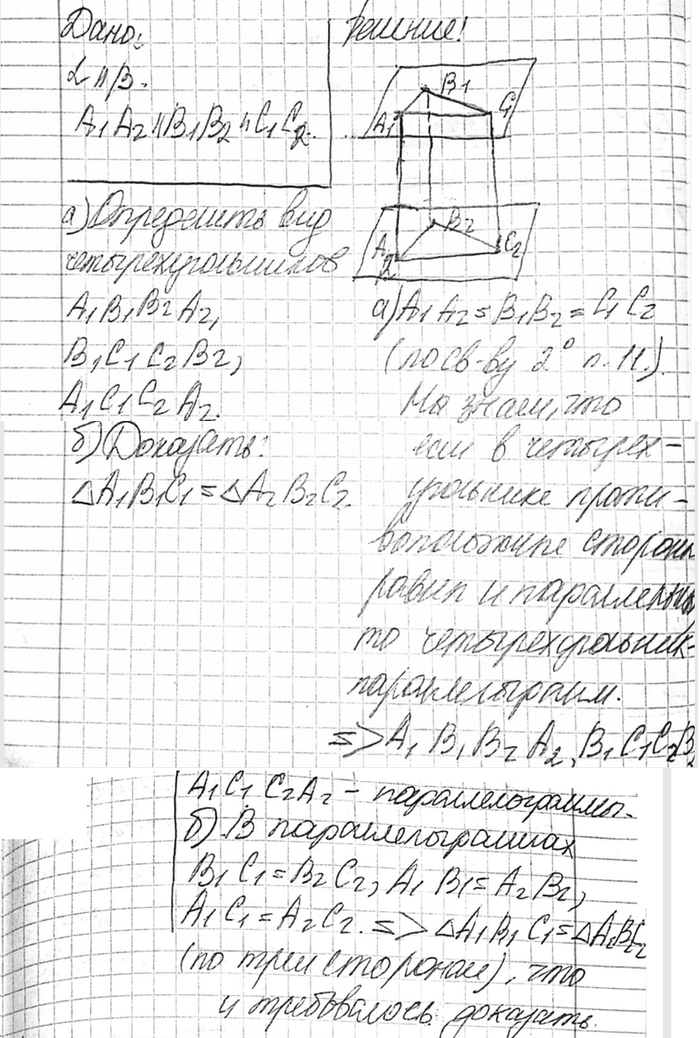 Дано:
α || β.
A₁A₂ || B₁B₂ || C₁C₂.
а) Определить вид
четырехугольников
A₁B₁B₂A₂,
B₁C₁C₂B₂,
A₁C₁C₂A₂.
б) Доказать:
△A₁B₁C₁ = △A₂B₂C₂.
Решение!
B₁
A₁
C₁
B₂
A₂
C₂
а) A₁A₂ = B₁B₂ = C₁C₂
(по св-ву 2° п. 11.)
Мы знаем, что
если в четырех-
угольнике проти-
воположные стороны
равны и параллельны
то четырехугольник-
параллелограмм.
=> A₁B₁B₂A₂, B₁C₁C₂B₂
A₁C₁C₂A₂ - параллелограммы.
б) В параллелограммах
B₁C₁ = B₂C₂, A₁B₁ = A₂B₂,
A₁C₁ = A₂C₂. => △A₁B₁C₁ = △A₂B₂C₂
(по трем сторонам), что
и требовалось доказать.